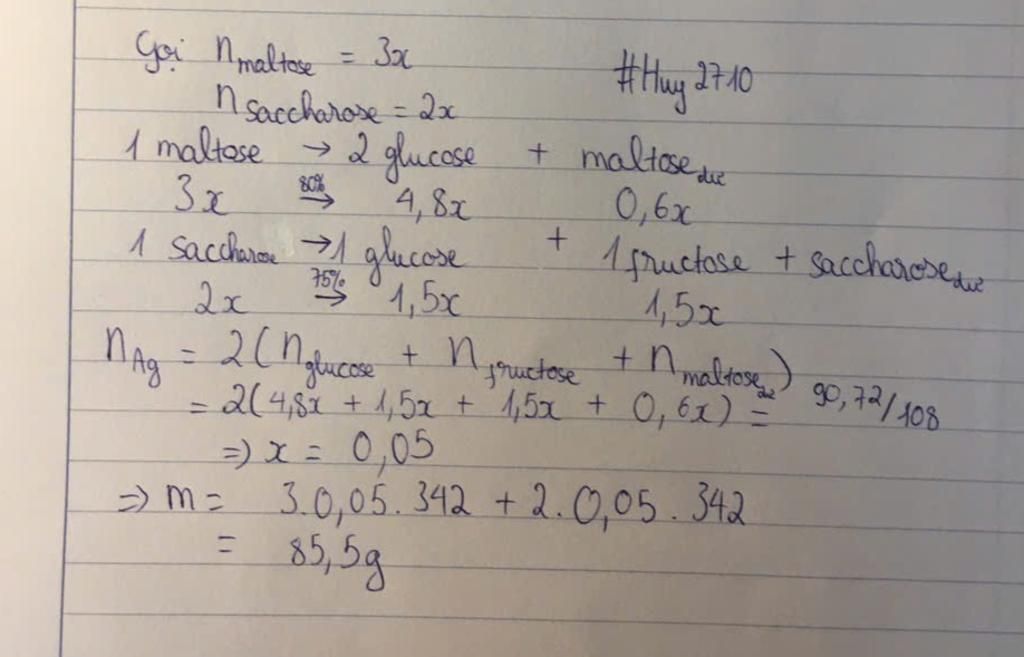 Gọi n maltose = 3x #Huy2710
n saccharose = 2x
1 maltose → 2 glucose + maltose dư
3x 80% → 4,8x 0,6x
1 saccharose → 1 glucose + 1 fructose + saccharose dư
2x 75% → 1,5x 1,5x
n Ag = 2(n glucose + n fructose + n maltose dư)
= 2(4,8x + 1,5x + 1,5x + 0,6x) = 90,72/108
⇒ x = 0,05
⇒ m = 3.0,05.342 + 2.0,05.342
= 85,5g